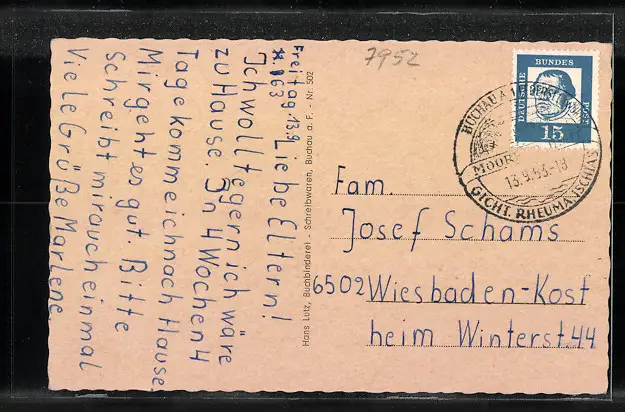 Freitag, 13.9
63
Liebe Eltern!
Ich wollte gern ich wäre
zu Hause. In 4 Wochen 4
Tage komme ich nach Hause.
Mir geht es gut. Bitte
Schreibt mir auch einmal
Viele Grüße Marlene
Hans Lutz, Buchbinderei - Schreibwaren, Buchau a. F. - Nr. 502
7952
DEUTSCHE
BUNDES
POST
15
BUCHAU A
MOOR
13.9.63-18
GICHT. RHEUMA. ISCHIAS
Fam.
Josef Schams
6502 Wiesbaden-Kost
heim Winterst. 44